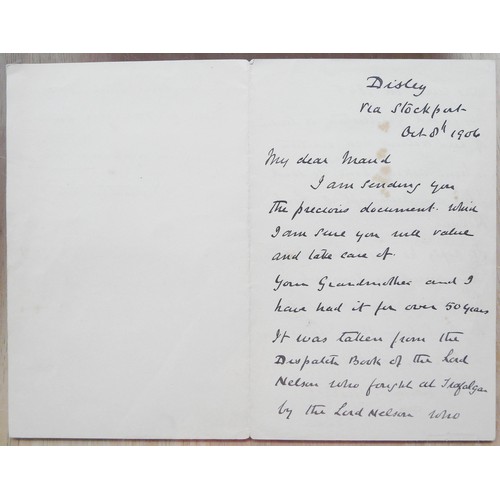 Disley
Via Stockport
Oct 8th 1906
My dear Maud
I am sending you
the precious document which
I am sure you will value
and take care of.
Your Grandmother and I
have had it for over 50 years
It was taken from the
Despatch Book of the Lord
Nelson who fought at Trafalgar
by the Lord Nelson who